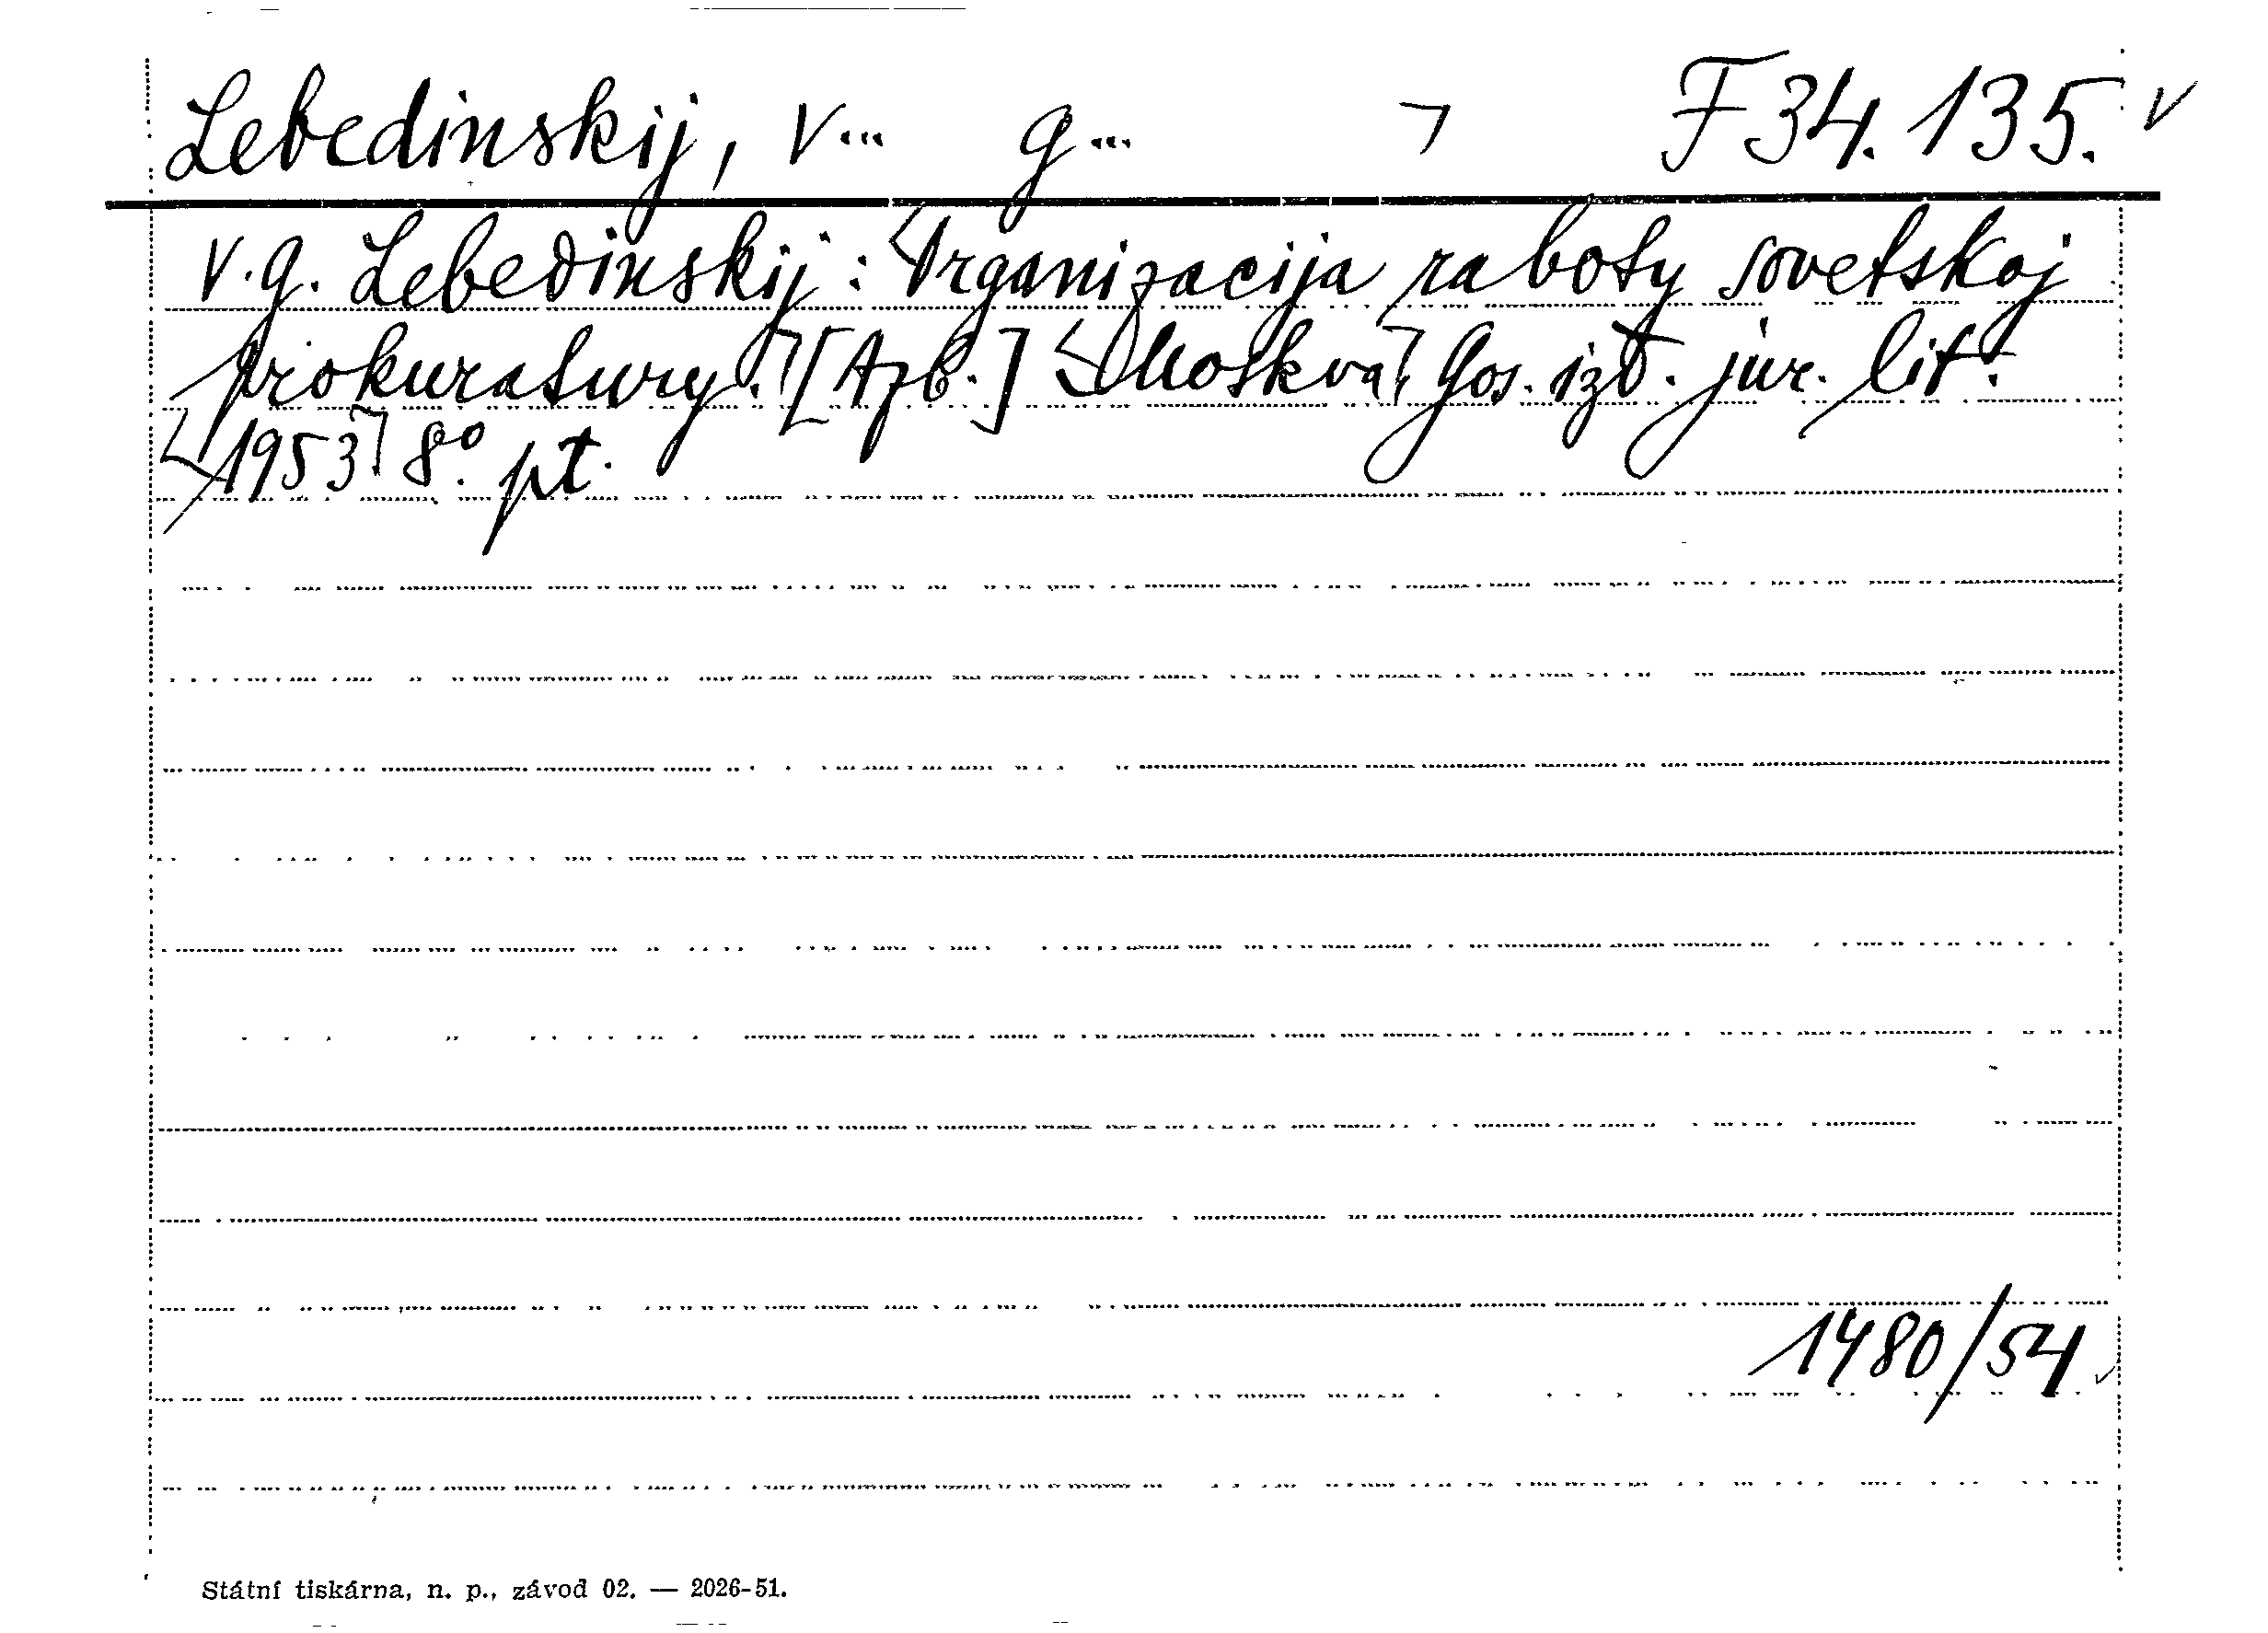 Lebedinskij, V... G... F 34.135.
V.G. Lebedinskij: Organizacija raboty sovetskoj
prokuratury. [Azb.] Moskva, Gos. izd. jur. lit.
1953. 8°. pt.
1480/54
Státní tiskárna, n. p., závod 02. — 2026-51.